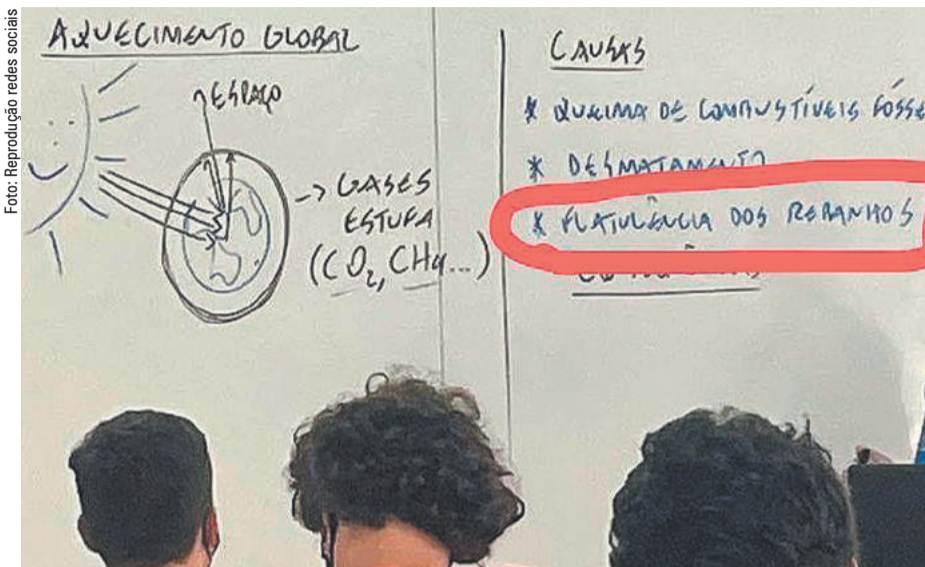 Foto: Reprodução redes sociais
AQUECIMENTO GLOBAL
ESPAÇO
-> GASES
ESTUFA
(CO2, CH4...)
CAUSAS
* QUEIMA DE COMBUSTÍVEIS FÓSSE
* DESMATAMENTO
* FLATULÊNCIA DOS REBANHOS